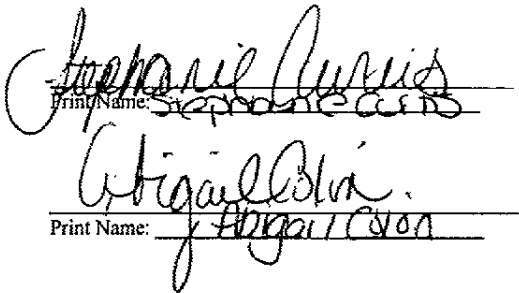 Stephanie Curtis
Print Name: Stephanie Curtis
Abigail Colon
Print Name: Abigail Colon